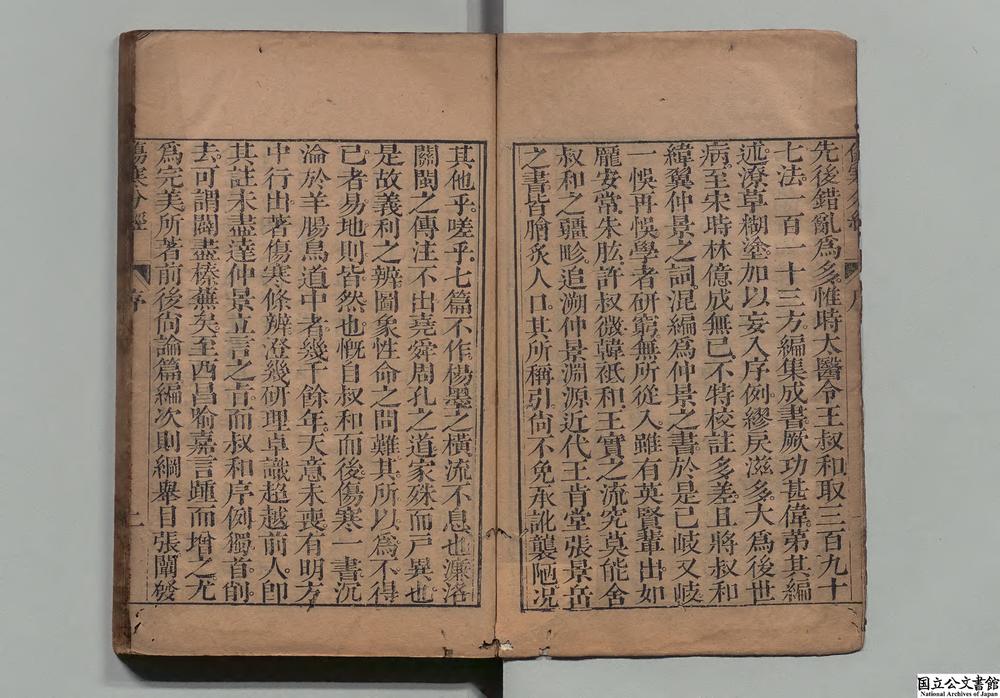 先後錯亂爲多惟時太醫令王叔和取三百九十
七法一百一十三方編集成書厥功甚偉第其編
述潦草糊塗加以妄入序例繆戾滋多大爲後世
病至宋時林億成無己不特校註多差且將叔和
緯翼仲景之詞混編爲仲景之書於是已岐又岐
一悞再悞學者研窮無所從入雖有英賢輩出如
龐安常朱肱許叔微韓祗和王實之流究莫能舍
叔和之疆畛追溯仲景淵源近代王肯堂張景岳
之書皆膾炙人口其所稱引尙不免承訛襲陋况
其他乎嗟乎七篇不作楊墨之橫流不息也濂洛
關閩之傳注不出堯舜周孔之道家殊而戸異也
是故義利之辨圖象性命之問難其所以爲不得
已者易地則皆然也慨自叔和而後傷寒一書沉
淪於羊腸鳥道中者幾千餘年天意未喪有明方
中行出著傷寒條辨澄幾研理卓識超越前人卽
其註未盡達仲景立言之旨而叔和序例獨首削
去可謂闢盡榛蕪矣至西昌喻嘉言踵而增之尤
爲完美所著前後尙論篇編次則綱舉目張闡發
傷寒分經
序
二
国立公文書館
National Archives of Japan